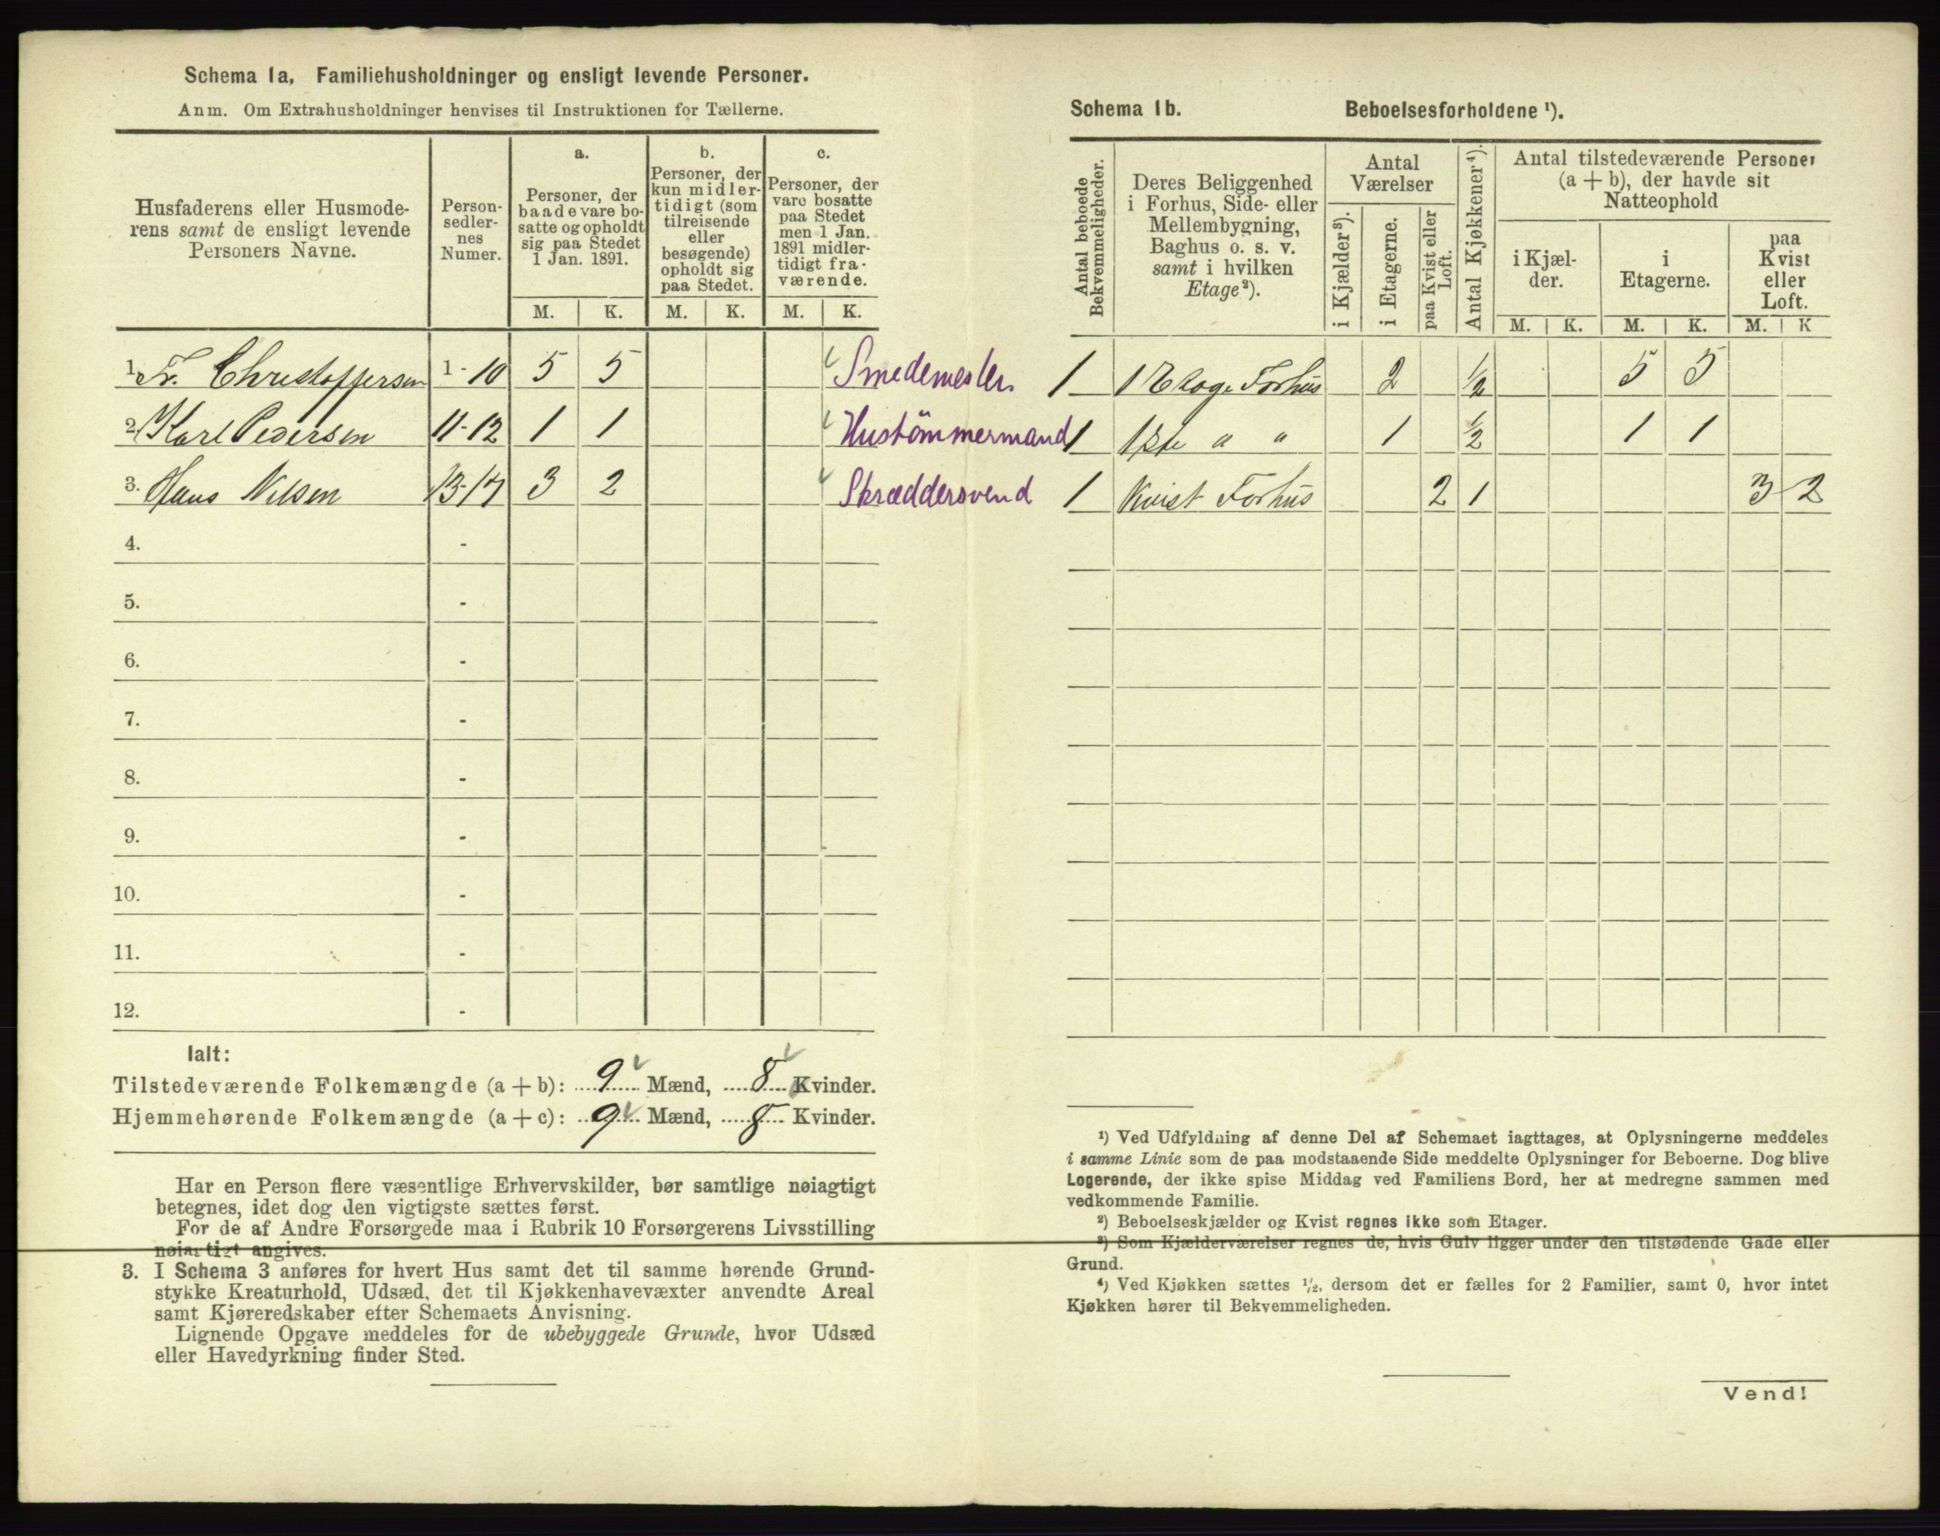 Schema 1a, Familiehusholdninger og ensligt levende Personer.
Anm. Om Extrahusholdninger henvises til Instruktionen for Tællerne.
Husfaderens eller Husmoderens samt de ensligt levende Personers Navne.
Personsedlernes Numer.
a. Personer, der baade vare bosatte og opholdt sig paa Stedet 1 Jan. 1891.
b. Personer, der kun midlertidigt (som tilreisende eller besøgende) opholdt sig paa Stedet.
c. Personer, der vare bosatte paa Stedet men 1 Jan. 1891 midlertidigt fraværende.
M. K. M. K. M. K.
1. Fr. Christoffersen 1-10 5 5 Smedemester
2. Karl Pedersen 11-12 1 1 Hustömmermand
3. Hans Nilsen 13-17 3 2 Skræddersvend
4. -
5. -
6. -
7. -
8. -
9. -
10. -
11. -
12. -
Ialt:
Tilstedeværende Folkemængde (a + b): 9 Mænd, 8 Kvinder.
Hjemmehørende Folkemængde (a + c): 9 Mænd, 8 Kvinder.
Har en Person flere væsentlige Erhvervskilder, bør samtlige nøiagtigt
betegnes, idet dog den vigtigste sættes først.
For de af Andre Forsørgede maa i Rubrik 10 Forsørgerens Livsstilling
nøiagtigt angives.
3. I Schema 3 anføres for hvert Hus samt det til samme hørende Grund-
stykke Kreaturhold, Udsæd, det til Kjøkkenhavevæxter anvendte Areal
samt Kjøreredskaber efter Schemaets Anvisning.
Lignende Opgave meddeles for de ubebyggede Grunde, hvor Udsæd
eller Havedyrkning finder Sted.
Schema 1b. Beboelsesforholdene ¹).
Antal beboede Bekvemmeligheder.
Deres Beliggenhed i Forhus, Side- eller Mellembygning, Baghus o. s. v. samt i hvilken Etage²).
Antal Værelser
i Kjælder³).
i Etagerne.
paa Kvist eller Loft.
Antal Kjøkkener⁴).
Antal tilstedeværende Personer (a + b), der havde sit Natteophold
i Kjælder.
i Etagerne.
paa Kvist eller Loft.
M. K. M. K. M. K
1 1 Etage Forhus 2 ½ 5 5
1 1ste " " 1 ½ 1 1
1 Kvist Forhus 2 1 3 2
¹) Ved Udfyldning af denne Del af Schemaet iagttages, at Oplysningerne meddeles
i samme Linie som de paa modstaaende Side meddelte Oplysninger for Beboerne. Dog blive
Logerende, der ikke spise Middag ved Familiens Bord, her at medregne sammen med
vedkommende Familie.
²) Beboelseskjælder og Kvist regnes ikke som Etager.
³) Som Kjælderværelser regnes de, hvis Gulv ligger under den tilstødende Gade eller
Grund.
⁴) Ved Kjøkken sættes ½, dersom det er fælles for 2 Familier, samt 0, hvor intet
Kjøkken hører til Bekvemmeligheden.
Vend!